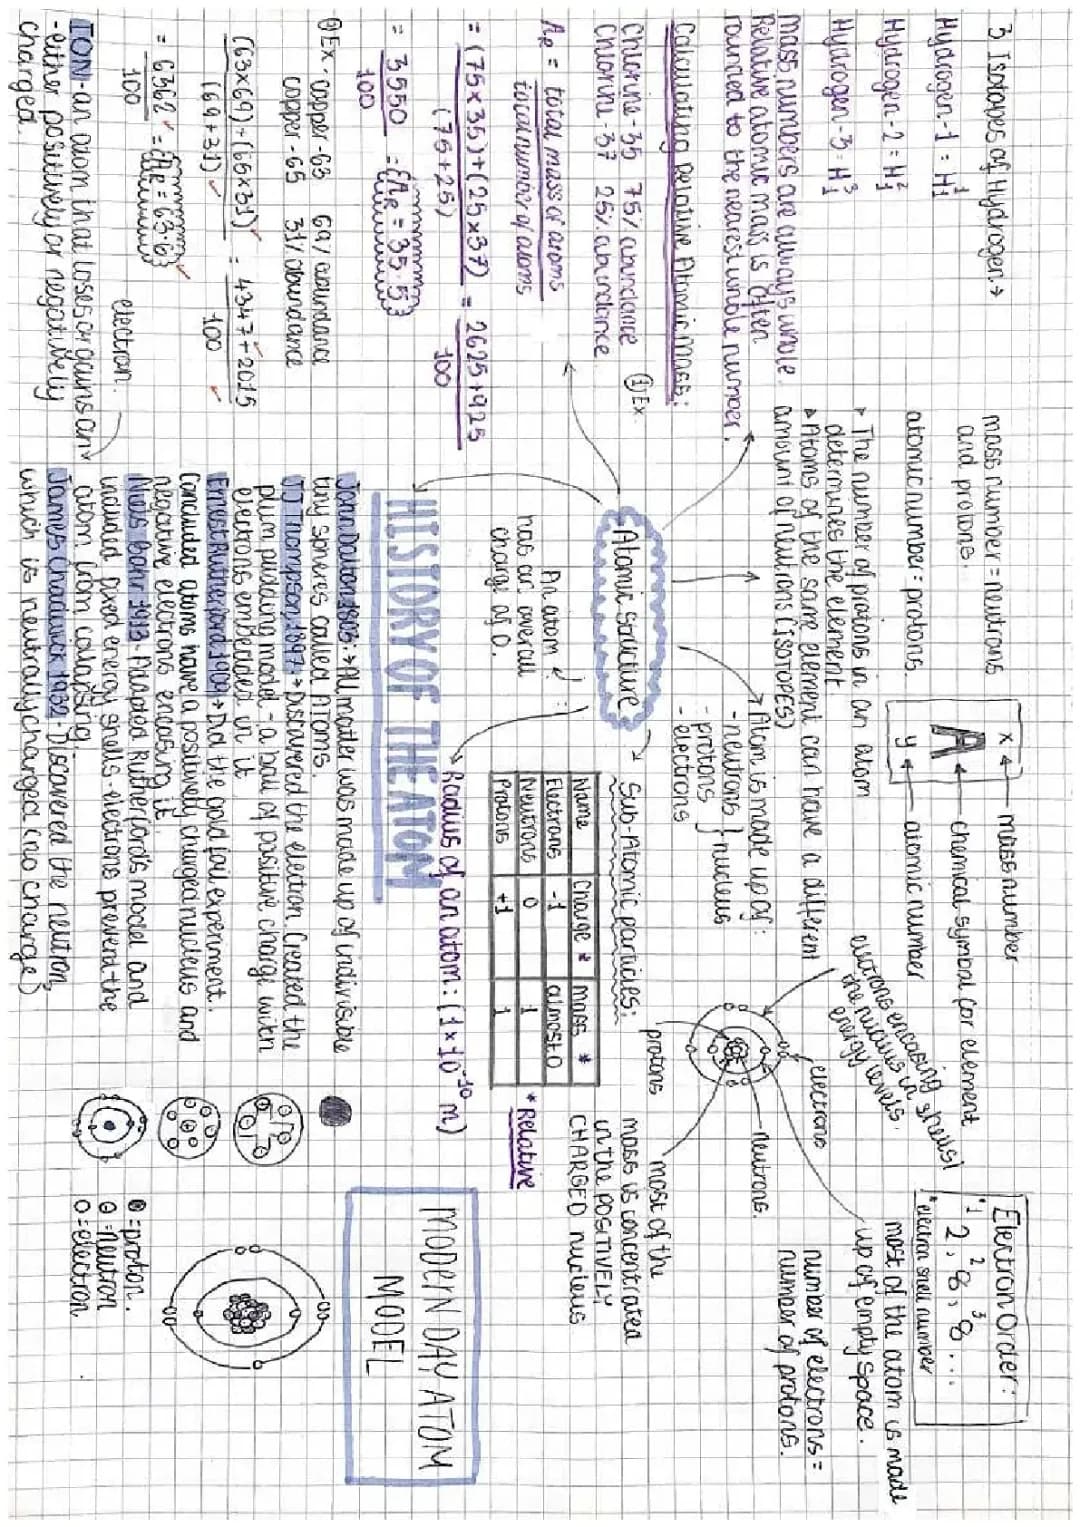 3 Isotopes of Hydrogen→
Hydrogen-1 = H¹₁
Hydrogen-2 = H²₁
Hydrogen-3 = H³₁
mass numbers are always whole.
Relative atomic mass is often
rounded to the nearest whole number.
Calculating relative Atomic mass:
Chlorine-35 75% abundance ① Ex
Chlorine-37 25% abundance.
AR = total mass of atoms
total number of atoms
= (75×35)+(25×37) = 2625+925
(75+25) 100
= 3550 = AR = 35.5
100
② Ex. copper-63 69% abundance
copper-65 31% abundance
(63×69)+(65×31) = 4347+2015
(69+31) 100
= 6362 = AR = 63.6
100
ION-an atom that loses or gains an electron.
-either positively or negatively
charged.
mass number = neutrons
and protons.
atomic number = protons.
x ← mass number
A ← chemical symbol for element
y ← atomic number
▸ The number of protons in an atom
determines the element
▸ Atoms of the same element can have a different
amount of neutrons (ISOTOPES)
Atomic structure
→ Atom is made up of:
- neutrons } nucleus
- protons
- electrons
→ Sub-Atomic particles:
Name Charge * mass *
Electrons -1 almost 0
Neutrons 0 1
Protons +1 1
*Relative
An atom
has an overall
charge of 0.
Radius of an atom: (1×10⁻¹⁰ m)
Electron Order:
*1 2 3
2, 8, 8...
*electron shell number
electrons encasing
the nucleus in shells/
energy levels.
electrons
neutrons.
protons
most of the atom is made
up of empty space.
number of electrons =
number of protons.
most of the
mass is concentrated
in the POSITIVELY
CHARGED nucleus
HISTORY OF THE ATOM
John Dalton 1803: → All matter was made up of indivisible
tiny spheres called ATOMS.
JJ Thompson, 1897: → Discovered the electron. Created the
plum pudding model - a ball of positive charge with
electrons embedded in it
Ernest Rutherford 1909 → Did the gold foil experiment.
Concluded atoms have a positively charged nucleus and
negative electrons encasing it.
Niels Bohr 1913 - Adapted Rutherford's model and
included fixed energy shells - electrons prevent the
atom from collapsing.
James Chadwick 1932 - Discovered the neutron,
which is neutrally charged (no charge)
MODERN DAY ATOM
MODEL
⊕ = proton.
⊖ = neutron
O = electron